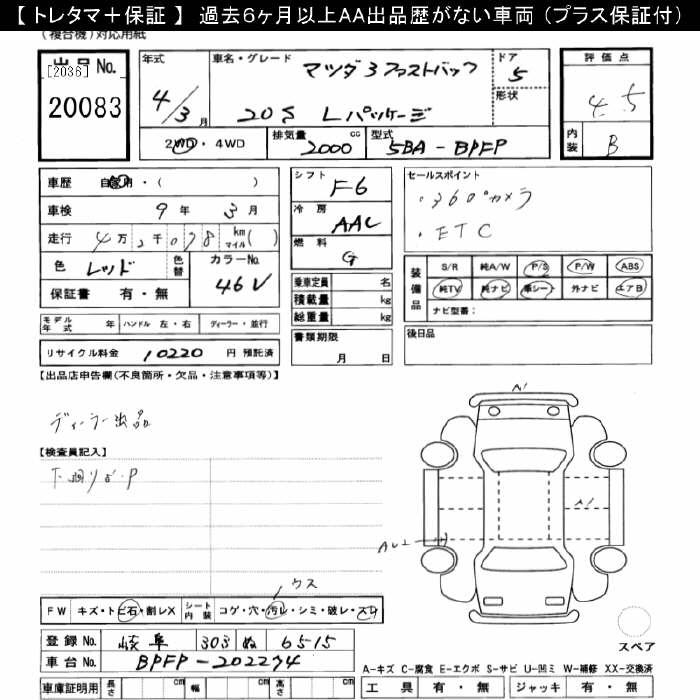 【 トレタマ＋保証 】 過去６ヶ月以上ＡＡ出品歴がない車両（プラス保証付）
(複合機)対応用紙
出品 No.
[2036]
20083
年式
4/3月
車名・グレード
マツダ3 ファストバック
20S Lパッケージ
ドア
5
形状
評価点
4.5
内装
B
2WD・4WD
排気量
2000 cc
型式
5BA-BPFP
車歴 自家用・( )
車検 9年 3月
走行 4万2千078 km マイル( )
色 レッド
色替
カラーNo. 46V
保証書 有・無
シフト F6
冷房 AAC
燃料 G
乗車定員 名
積載量 kg
総重量 kg
セールスポイント
・360°カメラ
・ETC
装備品
S/R 純A/W P/S P/W ABS
純TV 純ナビ 革シート 外ナビ エアB
ナビ型番：
モデル年式 年 ハンドル 左・右 ディーラー・並行
書類期限
月 日
後日品
リサイクル料金 10220 円 預託済
【出品店申告欄(不良箇所・欠品・注意事項等)】
ディーラー出品
【検査員記入】
下廻りさ・P
A1
A1
AU1
ウス
FW キズ・トビ石・割レX
シート内装 コゲ・穴・汚レ・シミ・破レ・スレ
登録 No. 岐阜 303 ぬ 6515
車台 No. BPFP-202274
車庫証明用 長さ cm 幅 cm 高さ cm
スペア
A-キズ C-腐食 E-エクボ S-サビ U-凹ミ W-補修 XX-交換済
工具 有・無 ジャッキ 有・無